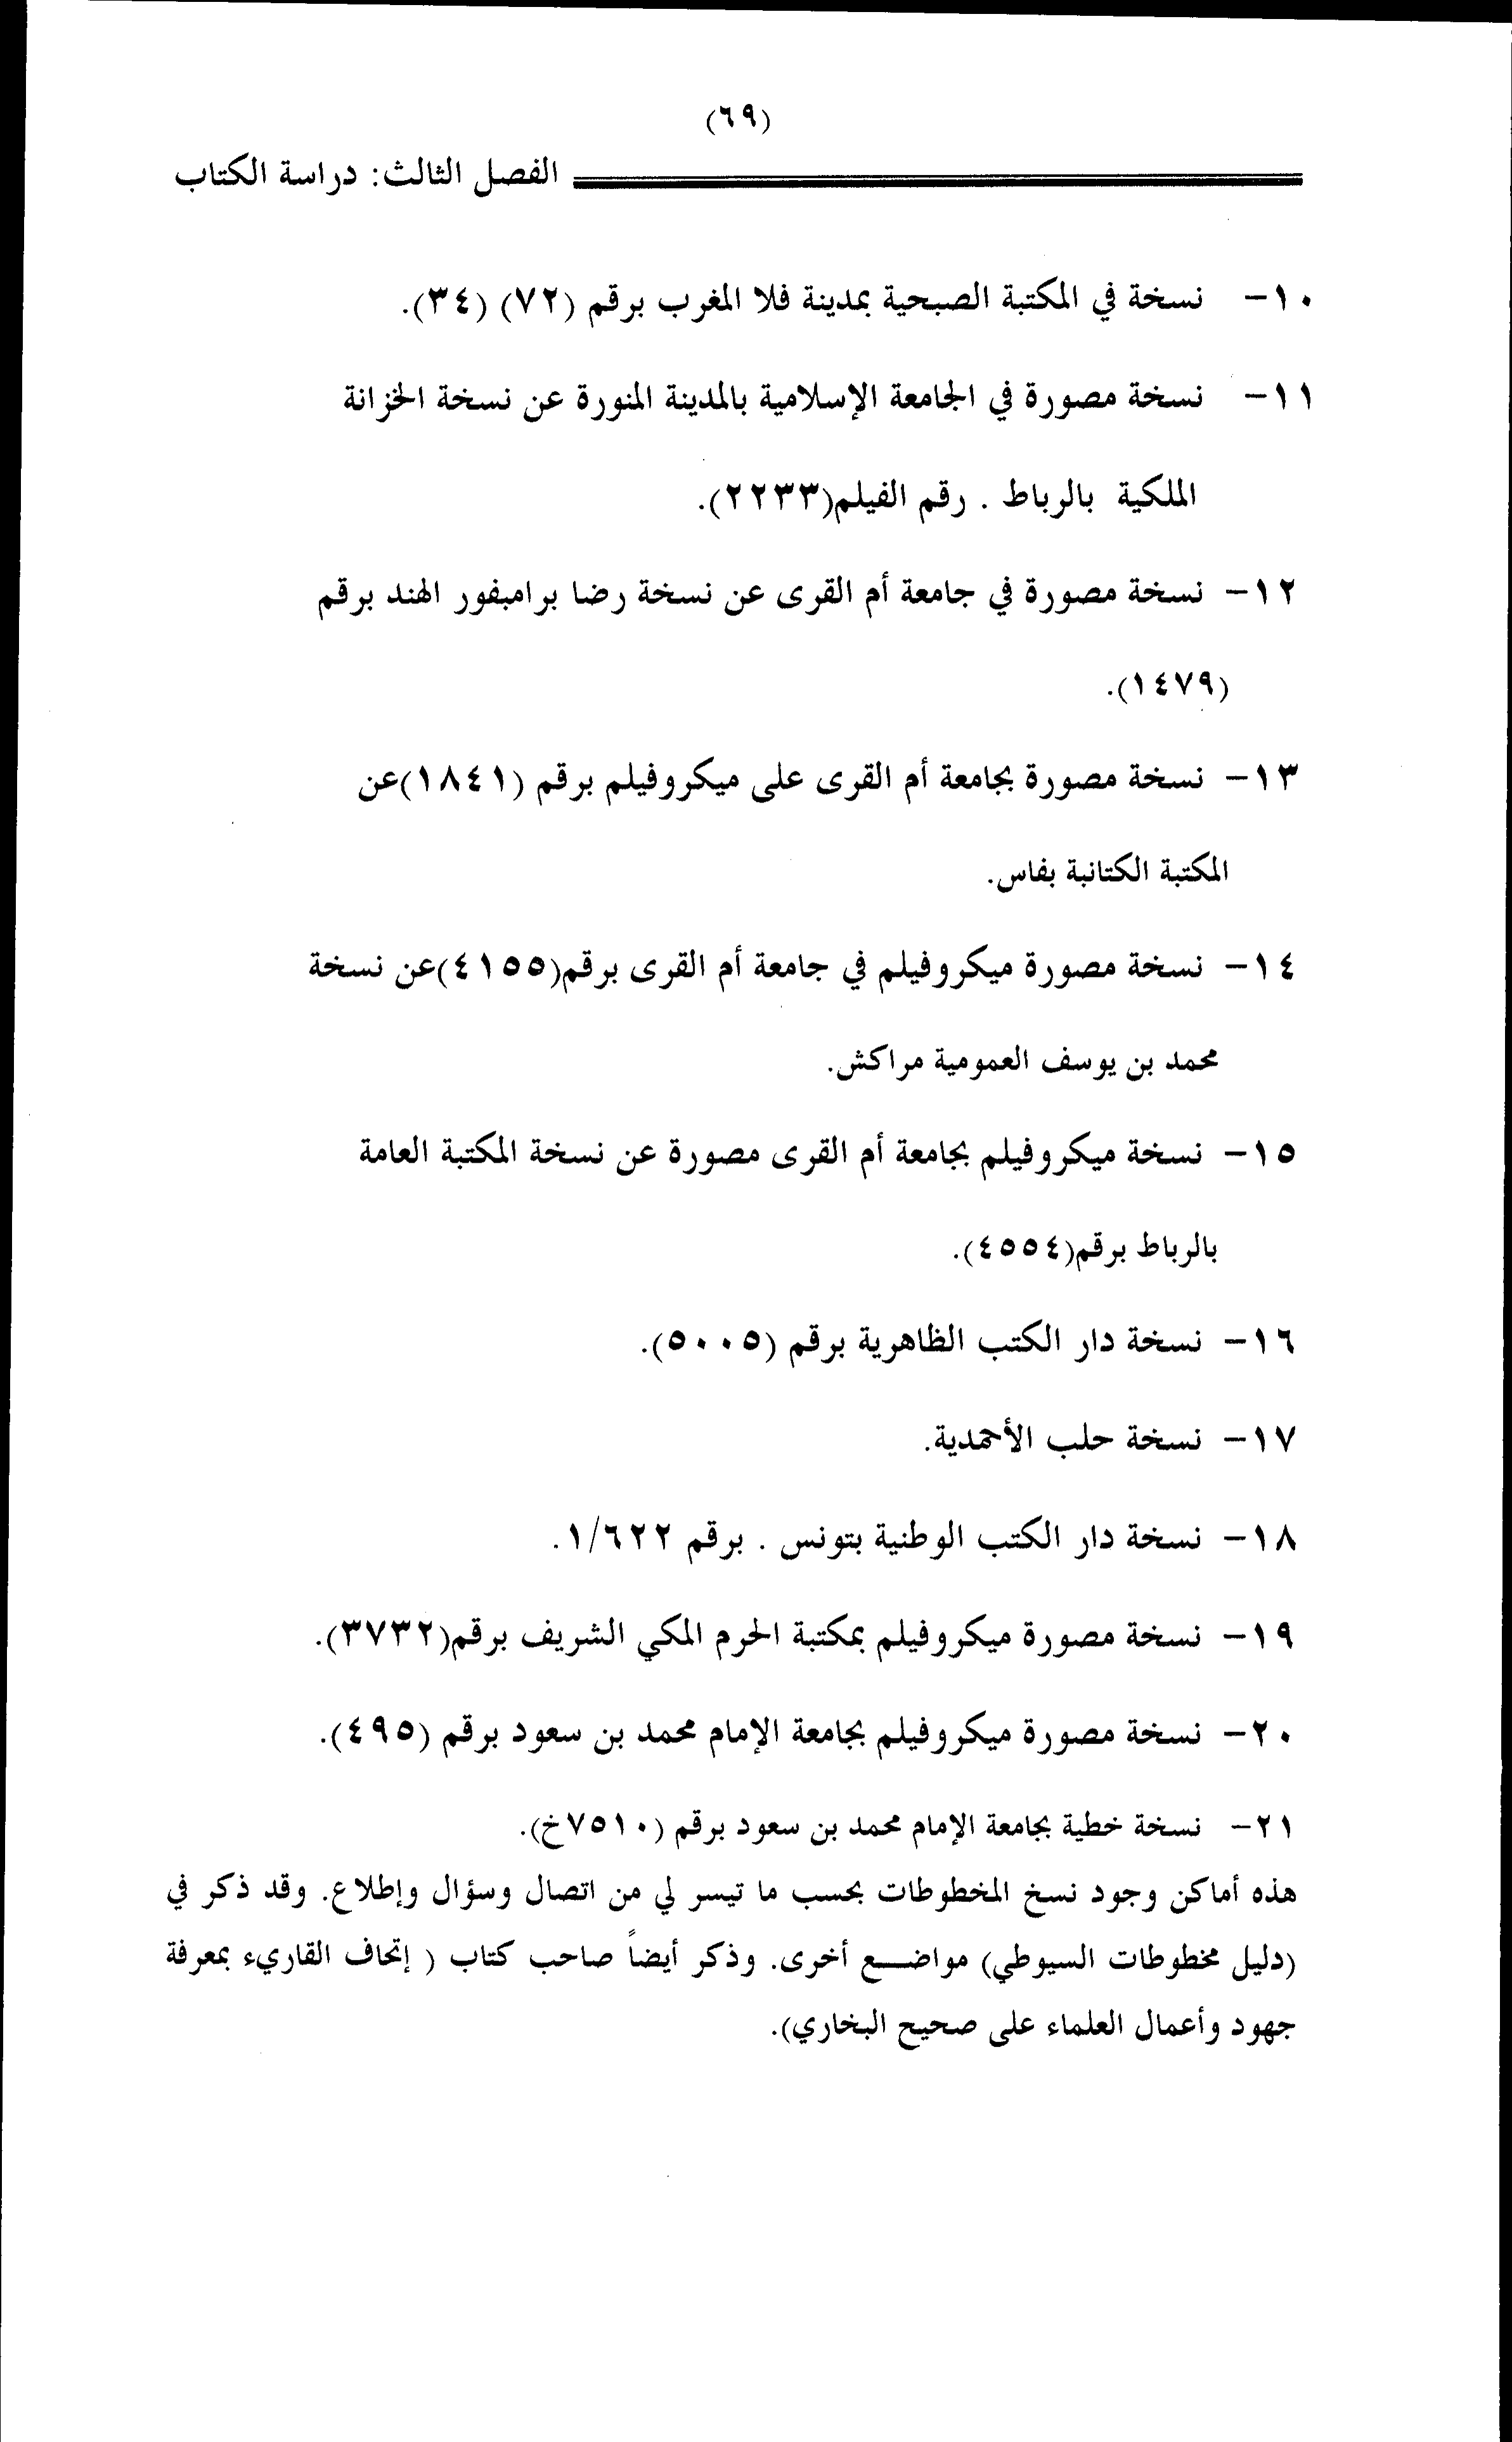 (٦٩)
الفصل الثالث: دراسة الكتاب
١٠- نسخة في المكتبة الصبحية بمدينة فلا المغرب برقم (٧٢) (٣٤).
١١- نسخة مصورة في الجامعة الإسلامية بالمدينة المنورة عن نسخة الخزانة
الملكية بالرباط . رقم الفيلم(٢٢٣٣).
١٢- نسخة مصورة في جامعة أم القرى عن نسخة رضا برامبفور الهند برقم
(١٤٧٩).
١٣- نسخة مصورة بجامعة أم القرى على ميكروفيلم برقم (١٨٤١)عن
المكتبة الكتانبة بفاس.
١٤- نسخة مصورة ميكروفيلم في جامعة أم القرى برقم(٤١٥٥)عن نسخة
محمد بن يوسف العمومية مراكش.
١٥- نسخة ميكروفيلم بجامعة أم القرى مصورة عن نسخة المكتبة العامة
بالرباط برقم(٤٥٥٤).
١٦- نسخة دار الكتب الظاهرية برقم (٥٠٠٥).
١٧- نسخة حلب الأحمدية.
١٨- نسخة دار الكتب الوطنية بتونس . برقم ١/٦٢٢.
١٩- نسخة مصورة ميكروفيلم بمكتبة الحرم المكي الشريف برقم(٣٧٣٢).
٢٠- نسخة مصورة ميكروفيلم بجامعة الإمام محمد بن سعود برقم (٤٩٥).
٢١- نسخة خطية بجامعة الإمام محمد بن سعود برقم (٧٥١٠خ).
هذه أماكن وجود نسخ المخطوطات بحسب ما تيسر لي من اتصال وسؤال وإطلاع. وقد ذكر في
(دليل مخطوطات السيوطي) مواضـــع أخرى. وذكر أيضاً صاحب كتاب ( إتحاف القاريء بمعرفة
جهود وأعمال العلماء على صحيح البخاري).